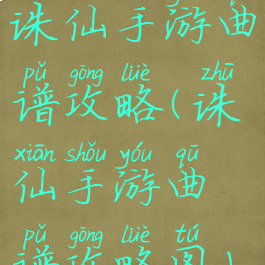 诛仙手游曲
pǔ gōng lüè zhū
谱攻略(诛
xiān shǒu yóu qū
仙手游曲
pǔ gōng lüè tú
谱攻略图)